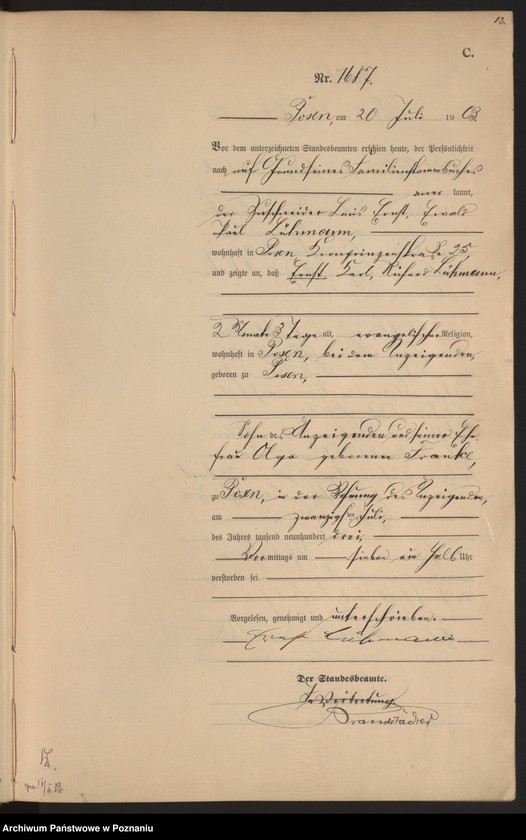 13.
C.
Nr. 1687.
Posen, am 20 Juli 1903.
Vor dem unterzeichneten Standesbeamten erschien heute, der Persönlichkeit
nach auf Grund seines Familienstammbuches
aner kannt,
der Zuschneider Ernst, Ewald
Paul Lühmann,
wohnhaft in Posen Kronprinzenstraße 25,
und zeigte an, daß Ernst, Karl, Richard Lühmann,
2 Monate 3 Tage alt, evangelischer Religion,
wohnhaft in Posen, bei dem Anzeigenden,
geboren zu Posen,
Sohn des Anzeigenden und seiner Ehe-
frau Olga geborenen Franke,
zu Posen, in der Wohnung des Anzeigenden,
am zwanzigsten Juli,
des Jahres tausend neunhundert drei,
Vormittags um sieben ein halb Uhr
verstorben sei.
Vorgelesen, genehmigt und unterschrieben.
Ernst Lühmann
Der Standesbeamte.
In Vertretung.
Brandstädter
Archiwum Państwowe w Poznaniu